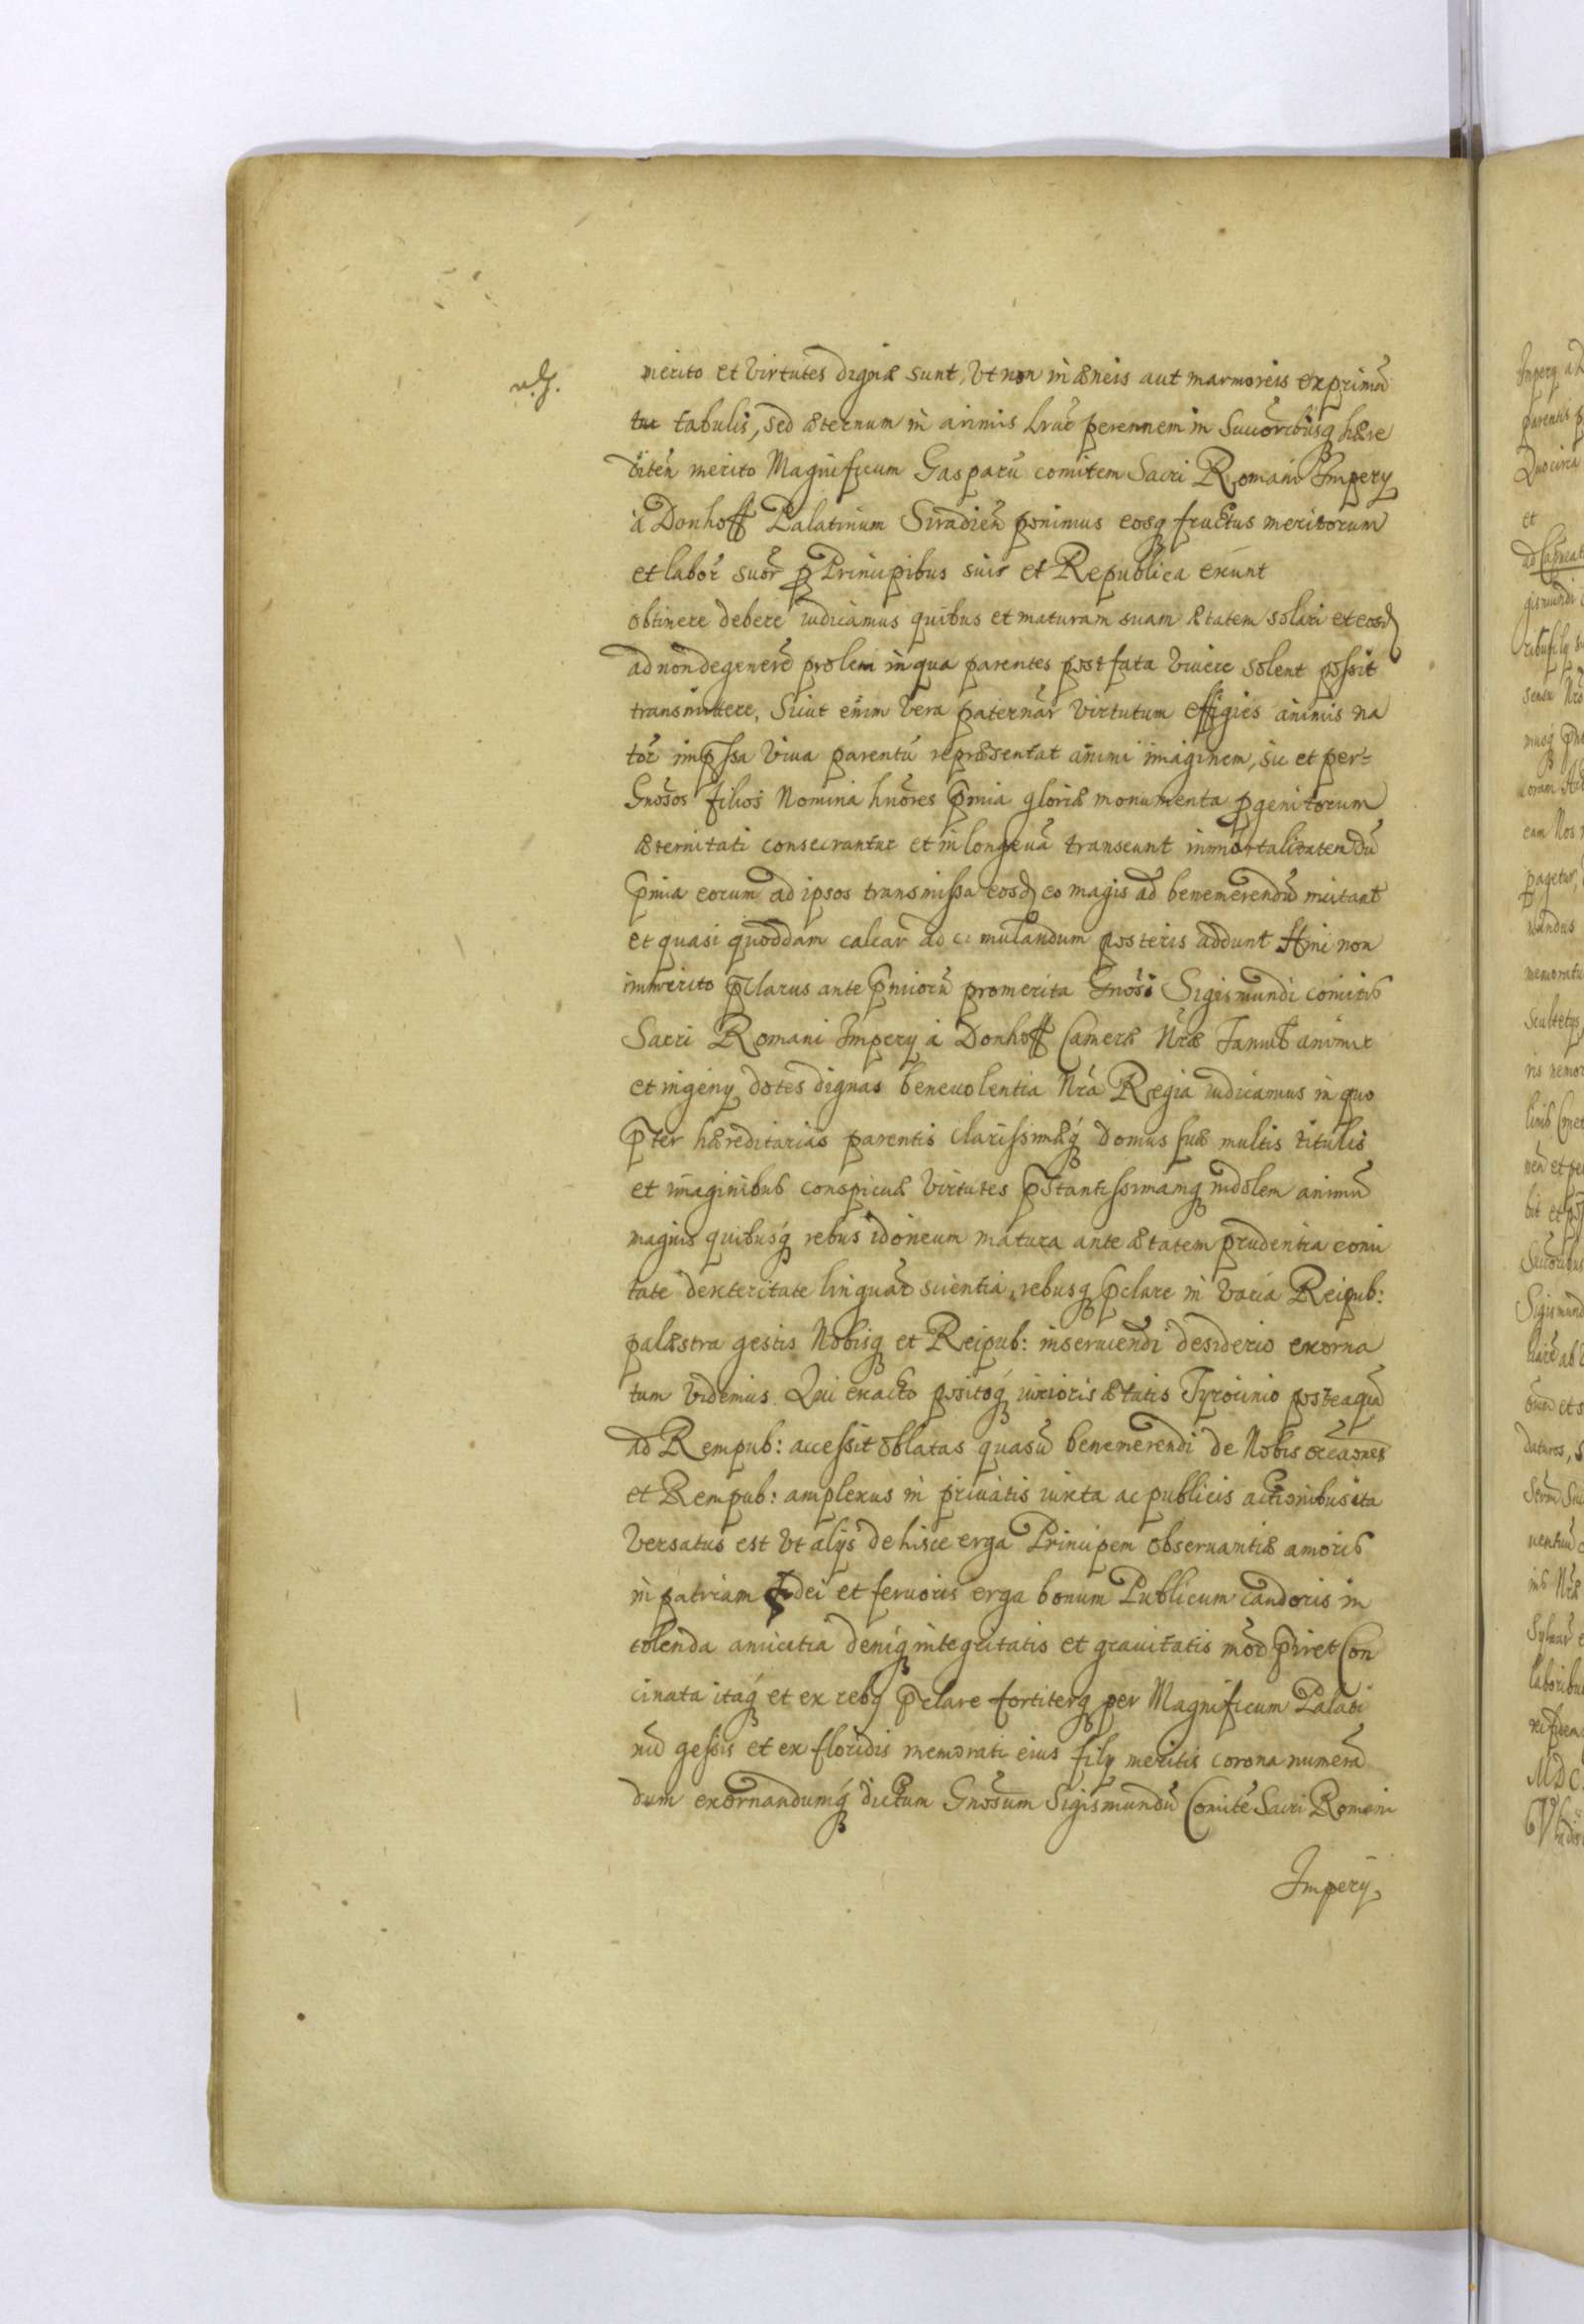 merito et Virtutes dignæ sunt, Vt non in æneis aut marmoreis exprimãn
tur tabulis, sed æternum in animis hrãr perennem in Succoribusq hære
ditẽn merito Magnificum Gasparũ comitem Sacri Romani Impery
à Donhoff Palatinum Siradieñ ponimus eosq fructus meritorum
et labor̃ suor̃ p Principibus suis et Republica exunt
obtinere debere iudicamus quibus et maturam suam ætatem solari et eosd
ad non degenerẽ prolem in qua parentes post fata Viuere solent possit
transmittere, Sicut enim Vera paternar̃ Virtutum effigies animis na
tor̃ impssa Viua parentũ repræsentat animi imaginem, sic et per-
Gnosos filios Nomina hnores pmia gloriæ monumenta pgenitorum
æternitati consecrantur et in longæuã transeunt immortalitatem dũ
pmia eorum ad ipsos transmissa eosd eo magis ad benemerendũ incitant
et quasi quoddam calcar ad mulandum posteris addunt Hinc non
immerito pclarus ante pmiorũ promerita Gnosi Sigismundi comitis
Sacri Romani Impery à Donhoff Cameræ Nræ animi
et ingeny dotes dignas beneuolentia Nrã Regia iudicamus in quo
pter hæreditarias parentis clarissimæq domus suæ multis titulis
et imaginibus conspicuæ Virtutes pstantissimamq indolem animũ
magnis quibusq rebus idoneum matura ante ætatem prudentia comi
tate dexteritate linguar̃ scientia, rebusq pclare in Varia Reipub:
palæstra gestis Nobisq et Reipub: inseruiendi desiderio exorna
tum Videmus. Qui exacto positoq iunioris ætatis Tyrocinio posteaquã
ad Rempub: accessit oblatas quasũ benemerendi de Nobis occaones
et Rempub: amplexus in priuatis iuxta ac publicis actionibus ita
Versatus est Vt alys de hisce erga Principem obseruantiæ amoris
in patriam fidei et feruoris erga bonum Publicum candoris in
colenda amicitia deniq integritatis et grauitatis
cinata itaq et ex rebq pclare fortiterq per Magnificum Palati
nũ gessis et ex floridis memorati eius fily meritis corona numerã
dum exornandumq dictum Gnosum Sigismundũ Comitẽ Sacri Romani
Impery